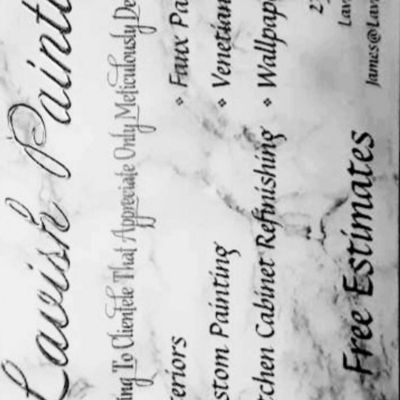 Lavish Painti
ing To Clientele That Appreciate Only Meticulously De
eriors
❖ Faux Pa
stom Painting
❖ Venetian
tchen Cabinet Refinishing
❖ Wallpap
Free Estimates
Lav
James@Lav